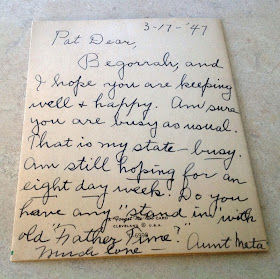 3-17-'47
Pat Dear,
Begorrah, and
I hope you are keeping
well & happy. Am sure
you are busy as usual.
That is my state - busy.
Am still hoping for an
eight day week. Do you
have any "stand in" with
old "Father Time?"
Much love - Aunt Meta
CLEVELAND U.S.A.